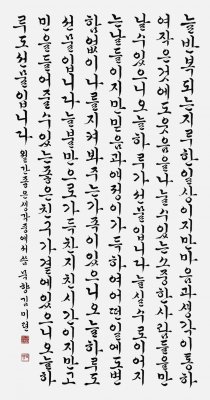 늘 반복되는 지루한 일상이지만 마음과 생각이 통하
여 작은 것에도 웃음을 나눌 수 있는 소중한 사람들을 만
날 수 있으니 오늘 하루가 선물입니다 늘 실수로 이어지
는 날들이지만 믿음과 애정이 가득하여 어떤 일에도 변
함없이 나를 지켜봐 주는 가족이 있으니 오늘 하루도
선물입니다 늘 불만으로 가득 찬 지친 시간이지만 고
민을 들어줄 수 있는 좋은 친구가 곁에 있으니 오늘 하
루도 선물입니다 월간 좋은생각 중에서 씀